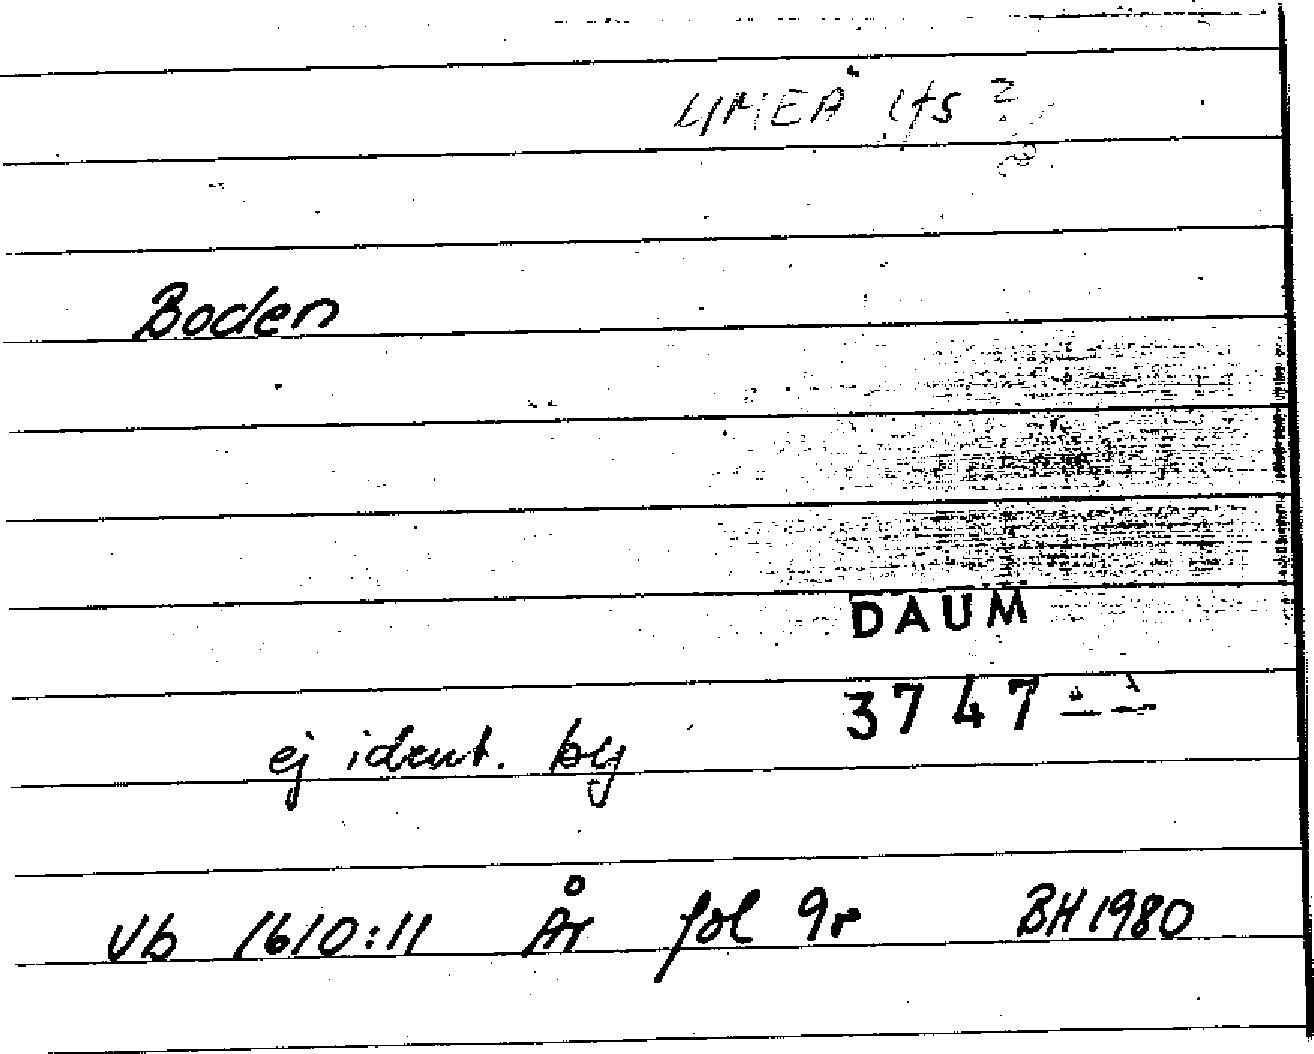 UMEÅ lfs ?
Boden
DAUM
3747
ej ident. by
Vb 1610:11 År fol 9r BH 1980